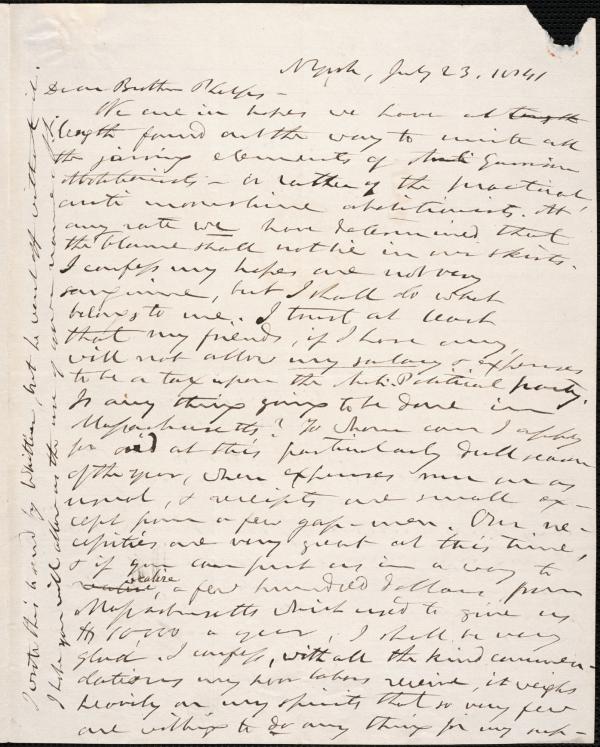 NYork, July 23, 1841
Dear Brother Phelps -
We are in hopes we have at length
length found out the way to unite all
the jarring elements of Anti Garrison
abolitionists - or rather of the practical,
anti moonshine abolitionists. At
any rate we have determined that
the blame shall not lie in our skirts.
I confess my hopes are not very
sanguine, but I shall do what
belongs to me. I trust at least
that my friends, if I have any,
will not allow my salary & expenses
to be a tax upon the Anti-Political party.
Is any thing going to be done in
Massachusetts? To whom can I apply
for aid at this particularly dull season
of the year, when expenses run on as
usual, & receipts are small ex-
cept from a few gap-men. Our ne-
cessities are very great at this time,
& if you can put us in a way to
realize
realize, a few hundred dollars from
Massachusetts which used to give us
10,000 a year, I shall be very
glad. I confess, with all the kind commen-
dations my poor labors receive, it weighs
heavily on my spirits that so very few
are willing to do any thing for my sup-
I wrote this to send by Whittier but he went off without it.
I hope you will allow us the use of your name